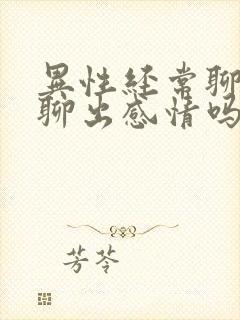 異性经常聊
聊出感情吗
芳苓